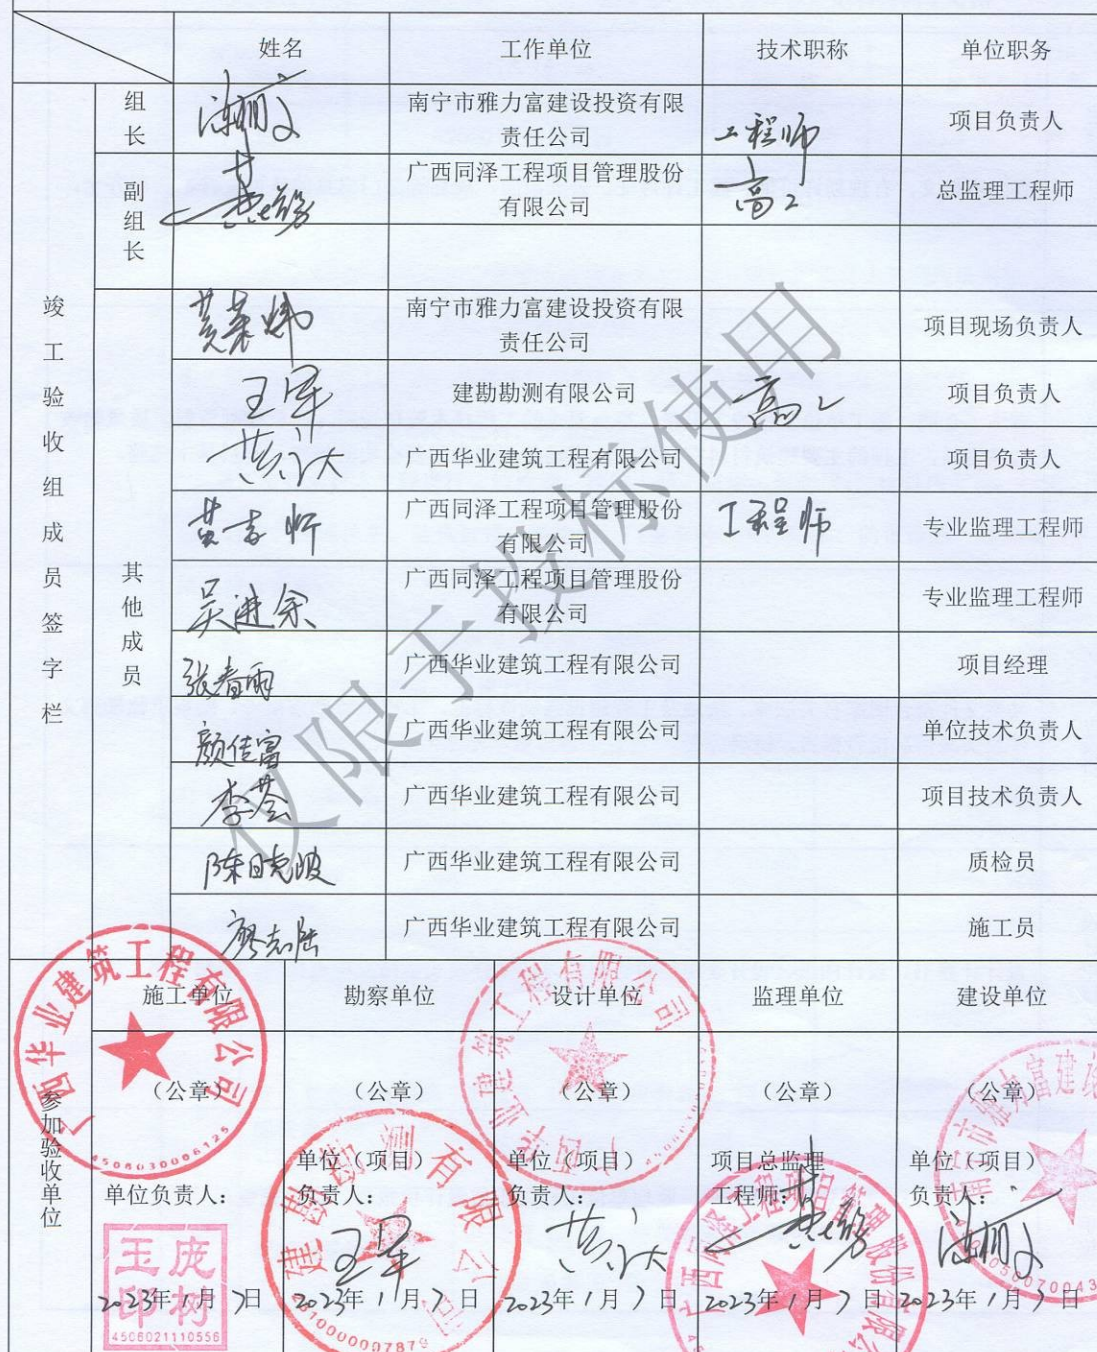 姓名 工作单位 技术职称 单位职务
竣工验收组成员签字栏
组长 南宁市雅力富建设投资有限责任公司 工程师 项目负责人
副组长 广西同泽工程项目管理股份有限公司 高工 总监理工程师
其他成员
南宁市雅力富建设投资有限责任公司 项目现场负责人
王军 建勘勘测有限公司 高工 项目负责人
广西华业建筑工程有限公司 项目负责人
广西同泽工程项目管理股份有限公司 工程师 专业监理工程师
吴进余 广西同泽工程项目管理股份有限公司 专业监理工程师
张春雨 广西华业建筑工程有限公司 项目经理
颜佳富 广西华业建筑工程有限公司 单位技术负责人
李荟 广西华业建筑工程有限公司 项目技术负责人
陈晓波 广西华业建筑工程有限公司 质检员
廖志 广西华业建筑工程有限公司 施工员
仅限于投标使用
参加验收单位
施工单位 勘察单位 设计单位 监理单位 建设单位
(公章) (公章) (公章) (公章) (公章)
单位负责人:
单位(项目)
负责人:
王军
单位(项目)
负责人:
项目总监理
工程师:
单位(项目)
负责人:
2023年1月7日 2023年1月7日 2023年1月7日 2023年1月7日 2023年1月7日
广西华业建筑工程有限公司
4506030006125
玉庞
印树
4506021110556
建勘勘测有限公司
广西华业建筑工程有限公司
广西同泽工程项目管理股份有限公司